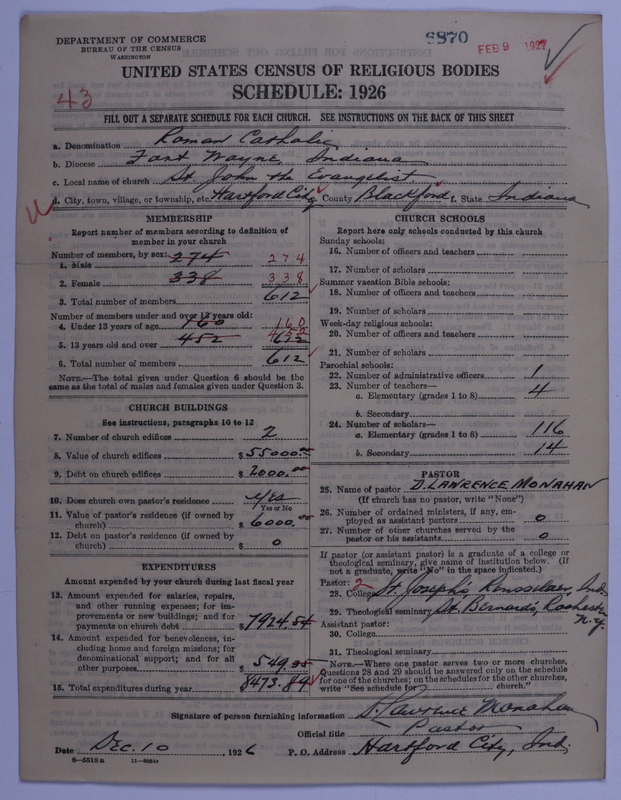 DEPARTMENT OF COMMERCE
BUREAU OF THE CENSUS
WASHINGTON
FEB 9 1927
UNITED STATES CENSUS OF RELIGIOUS BODIES
SCHEDULE: 1926
43
FILL OUT A SEPARATE SCHEDULE FOR EACH CHURCH. SEE INSTRUCTIONS ON THE BACK OF THIS SHEET
a. Denomination Roman Catholic
b. Diocese Fort Wayne, Indiana
c. Local name of church St. John the Evangelist
d. City, town, village, or township, etc. Hartford City County Blackford f. State Indiana
MEMBERSHIP
Report number of members according to definition of
member in your church
Number of members, by sex:
1. Male 274 274
2. Female 338 338
3. Total number of members 612
Number of members under and over 13 years old:
4. Under 13 years of age 160 160
5. 13 years old and over 452
6. Total number of members 612
NOTE.—The total given under Question 6 should be
same as the total of males and females given under Question 3.
CHURCH BUILDINGS
See instructions, paragraphs 10 to 12
7. Number of church edifices 2
8. Value of church edifices $ 55000.00
9. Debt on church edifices $ 2000.00
10. Does church own pastor's residence Yes
Yes or No
11. Value of pastor's residence (if owned by
church) $ 6000.00
12. Debt on pastor's residence (if owned by
church) $ 0
EXPENDITURES
Amount expended by your church during last fiscal year
13. Amount expended for salaries, repairs,
and other running expenses; for im-
provements or new buildings; and for
payments on church debt $ 7924.54
14. Amount expended for benevolences, in-
cluding home and foreign missions; for
denominational support; and for all
other purposes $ 549.35
15. Total expenditures during year 8473.89
CHURCH SCHOOLS
Report here only schools conducted by this church
Sunday schools:
16. Number of officers and teachers
17. Number of scholars
Summer vacation Bible schools:
18. Number of officers and teachers
19. Number of scholars
Week-day religious schools:
20. Number of officers and teachers
21. Number of scholars
Parochial schools:
22. Number of administrative officers 1
23. Number of teachers—
a. Elementary (grades 1 to 8) 4
b. Secondary
24. Number of scholars—
a. Elementary (grades 1 to 8) 116
b. Secondary 14
PASTOR
25. Name of pastor D. LAWRENCE MONAHAN
(If church has no pastor, write "None")
26. Number of ordained ministers, if any, em-
ployed as assistant pastors 0
27. Number of other churches served by the
pastor or his assistants 0
If pastor (or assistant pastor) is a graduate of a college or
theological seminary, give name of institution below. (If
not a graduate, write "No" in the space indicated.)
Pastor: 2
28. College St. Joseph's Rensselaer, Ind.
29. Theological seminary St. Bernard's, Rochester
N.Y.
Assistant pastor:
30. College
31. Theological seminary
NOTE.—Where one pastor serves two or more churches,
Questions 28 and 29 should be answered only on the schedule
for one of the churches; on the schedules for the other churches,
write "See schedule for church."
Signature of person furnishing information D. Lawrence Monahan
Official title Pastor
Date Dec. 10, 1926 P. O. Address Hartford City, Ind.